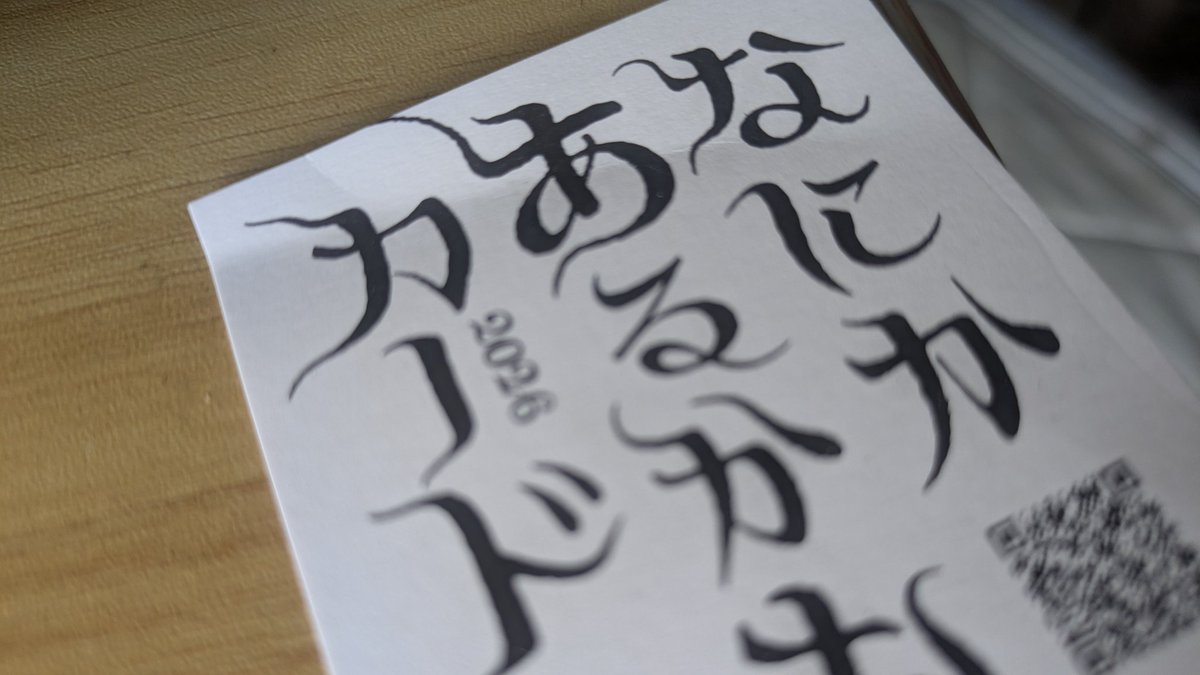 なにか
あるか
カード
2026